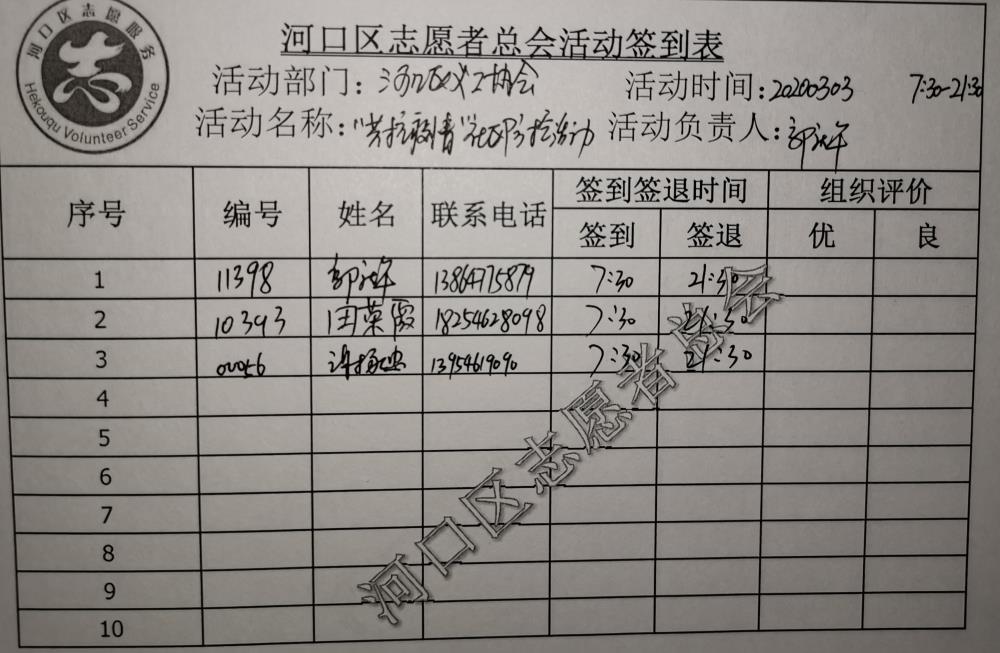 河口区志愿服务
志
Hekouqu Volunteer Service
河口区志愿者总会活动签到表
活动部门：河口区义工协会 活动时间：20200303 7:30-21:30
活动名称：“共抗疫情”社区防控活动 活动负责人：
序号 编号 姓名 联系电话 签到签退时间 组织评价
签到 签退 优 良
1 11398 13864775879 7:30 21:30
2 10393 田荣霞 18254628098 7:30 21:30
3 00056 13954619090 7:30 21:30
4
5
6
7
8
9
10
河口区志愿者总会